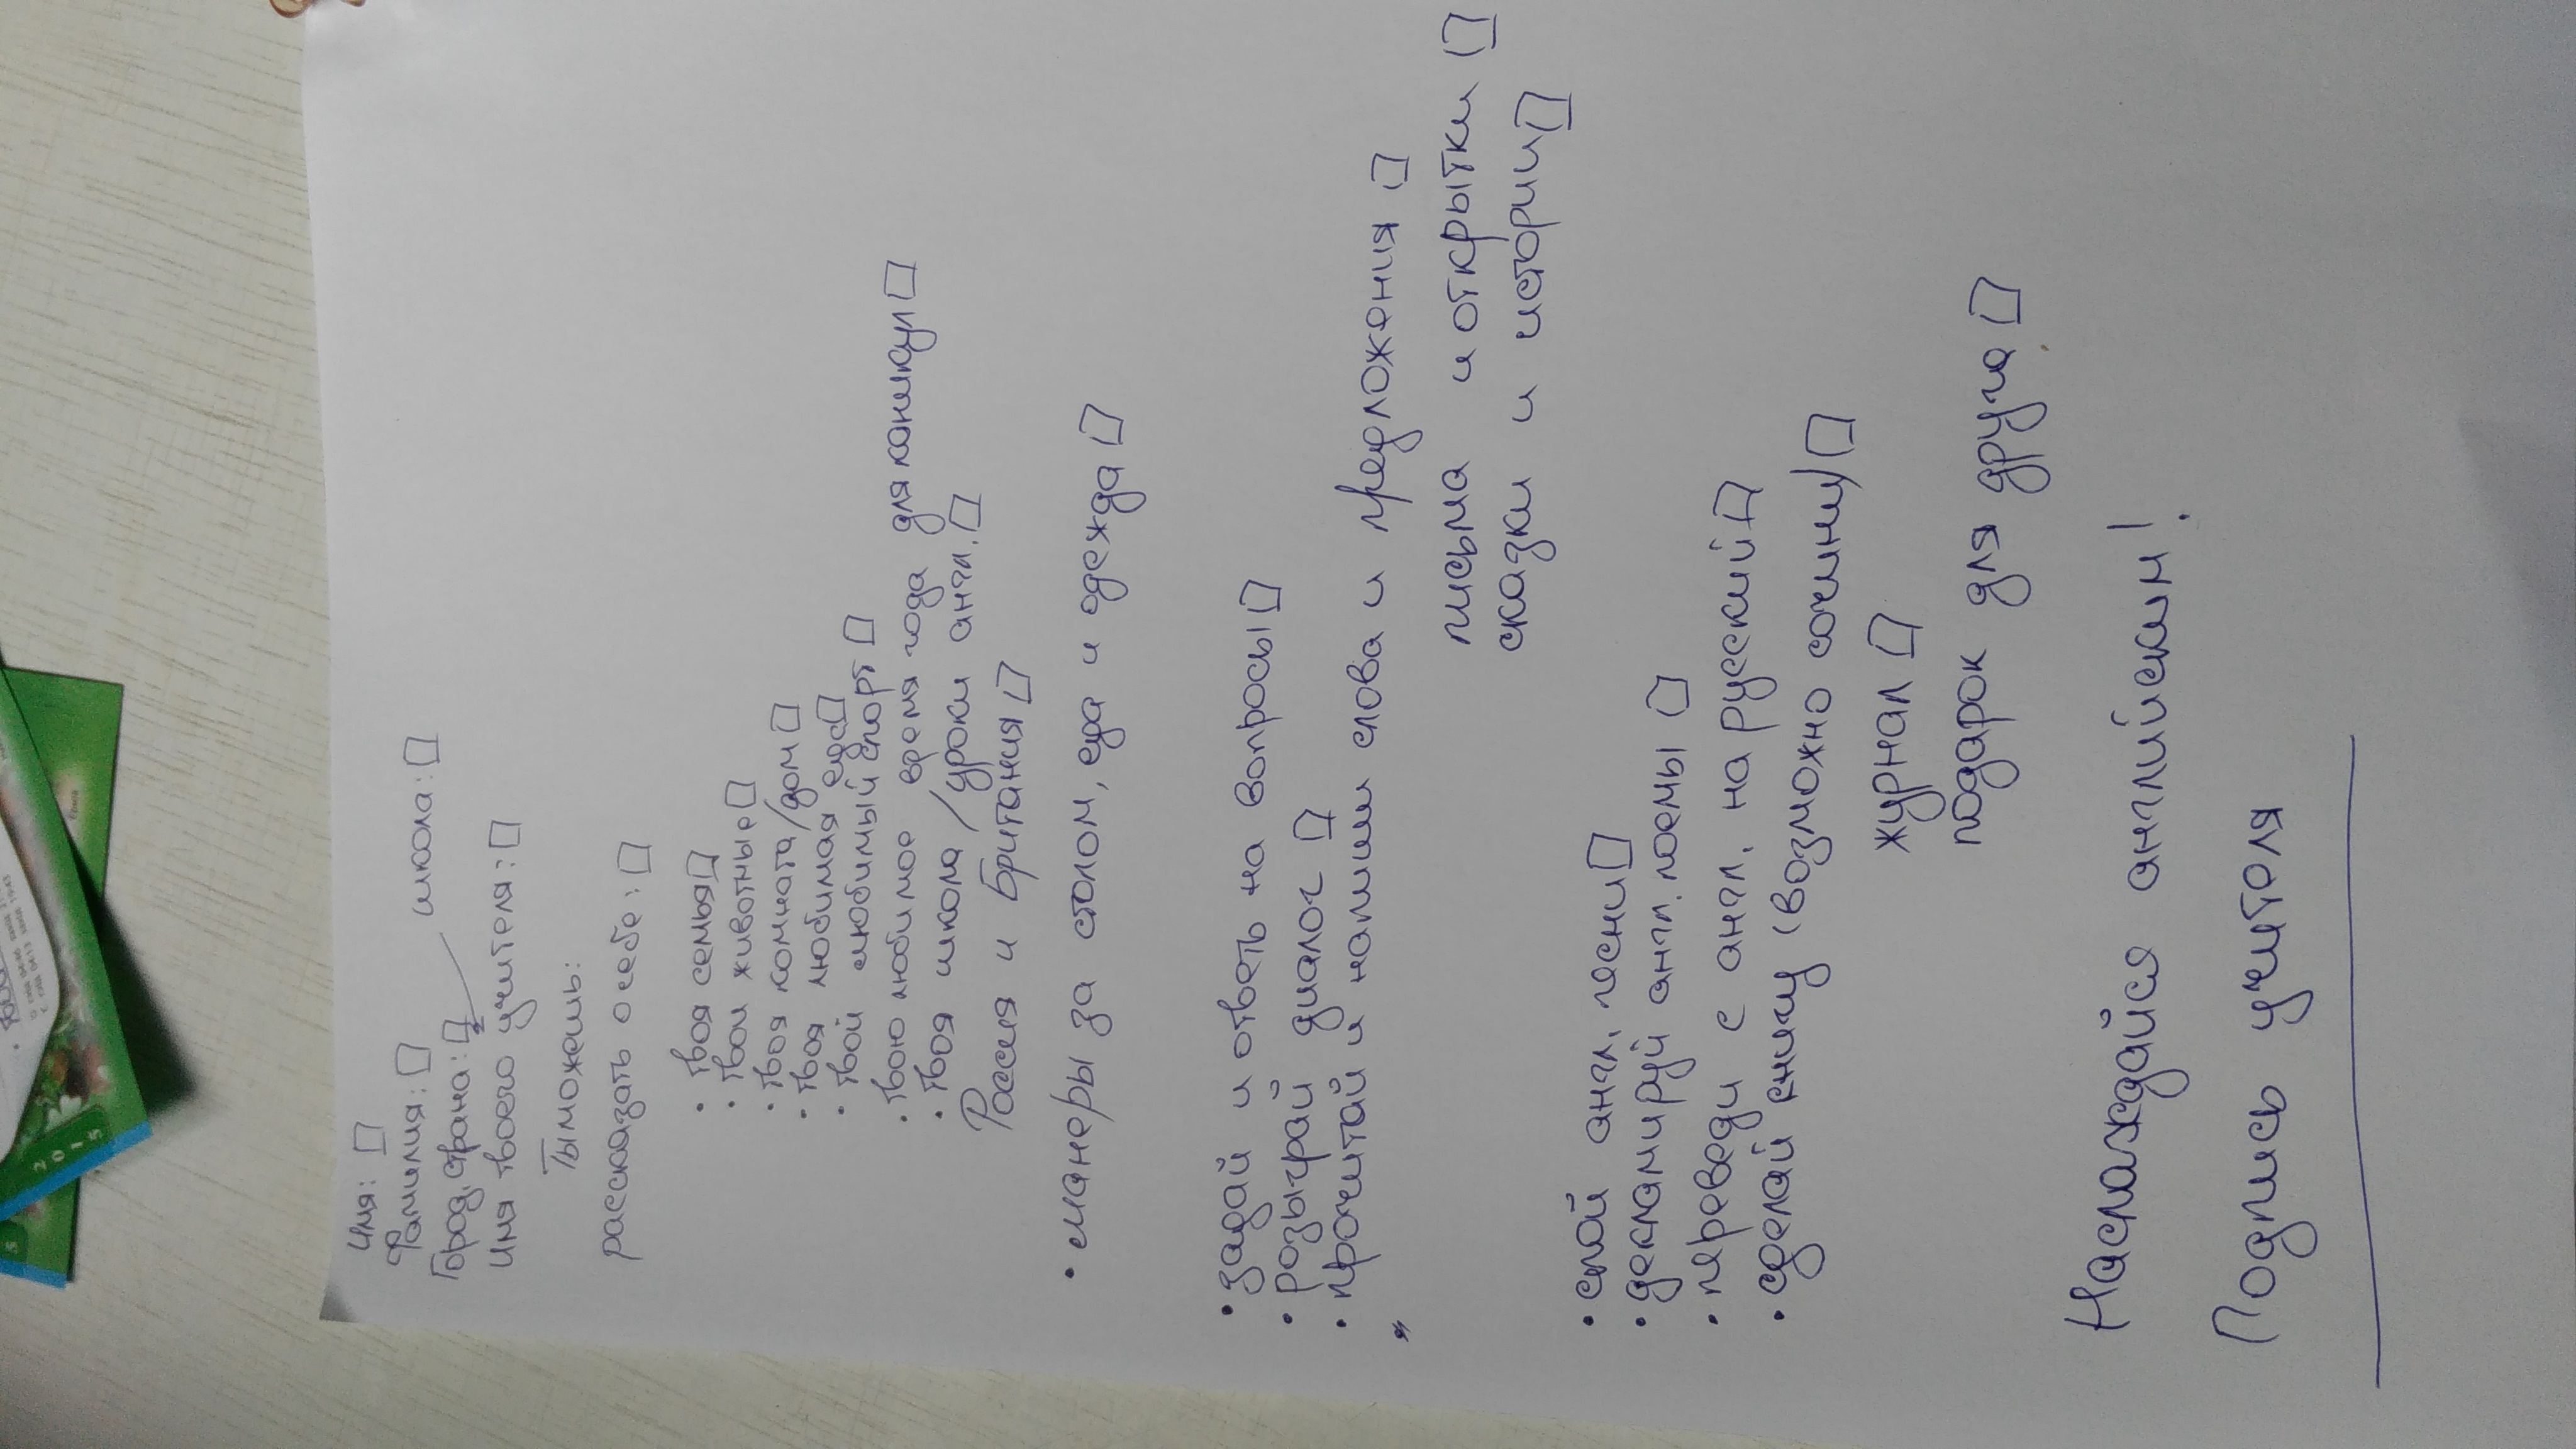 имя: □
Фамилия: □
Город, страна: □ школа: □
Имя твоего учителя: □
Ты можешь:
рассказать о себе: □
• твоя семья □
• твои животные □
• твоя комната/дом □
• твоя любимая еда □
• твой любимый спорт □
• твою любимое время года для каникул □
• твоя школа/уроки англ. □
Россия и Британия □
• манеры за столом, еда и одежда □
• задай и ответь на вопросы □
• розыграй диалог □
• прочитай и напиши слова и предложения □
письма и открытки □
сказки и истории □
• спой англ. песни □
• декламируй англ. поемы □
• переведи с англ. на русский □
• сделай книгу (возможно сочини) □
журнал □
подарок для друга □
Наслаждайся английским!
Подпись учителя
2015